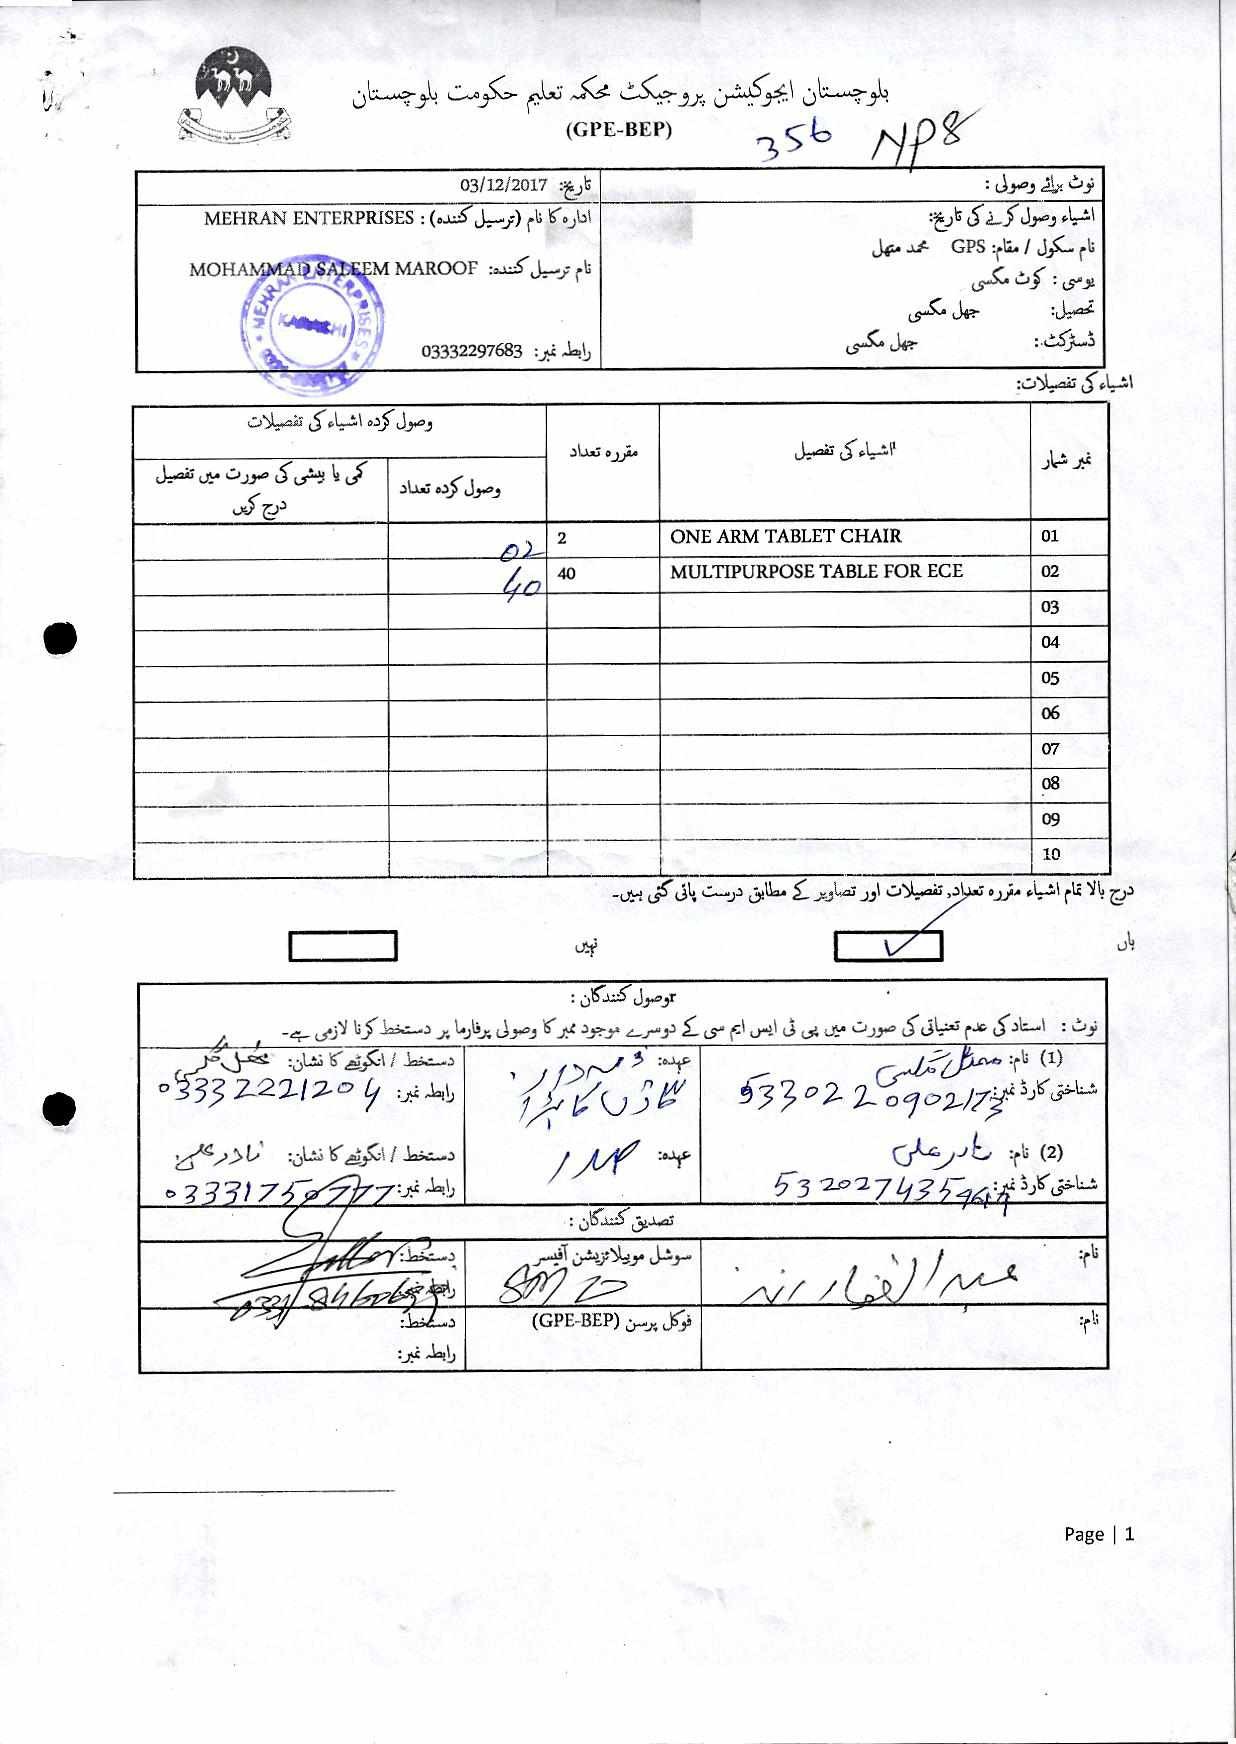 بلوچستان ایجوکیشن پروجیکٹ محکمہ تعلیم حکومت بلوچستان
(GPE-BEP)
356 NP8
نوٹ برائے وصولی :
اشیاء وصول کرنے کی تاریخ:
نام سکول / مقام: GPS محمد مٹھل
یوسی : کوٹ مگسی
تحصیل: جھل مگسی
ڈسٹرکٹ: جھل مگسی
تاریخ: 03/12/2017
ادارہ کا نام (ترسیل کنندہ) : MEHRAN ENTERPRISES
نام ترسیل کنندہ: MOHAMMAD SALEEM MAROOF
MEHRAN ENTERPRISES
KARACHI
رابطہ نمبر: 03332297683
اشیاء کی تفصیلات:
نمبر شمار اشیاء کی تفصیل مقررہ تعداد وصول کردہ اشیاء کی تفصیلات
وصول کردہ تعداد کمی یا بیشی کی صورت میں تفصیل درج کریں
01 ONE ARM TABLET CHAIR 2 02
02 MULTIPURPOSE TABLE FOR ECE 40 40
03
04
05
06
07
08
09
10
درج بالا تمام اشیاء مقررہ تعداد, تفصیلات اور تصاویر کے مطابق درست پائی گئی ہیں۔
ہاں نہیں
وصول کنندگان :
نوٹ : استاد کی عدم تعنیاتی کی صورت میں پی ٹی ایس ایم سی کے دوسرے موجود ممبر کا وصولی پرفارما پر دستخط کرنا لازمی ہے۔
(1) نام: عہدہ: دستخط / انگوٹھے کا نشان:
شناختی کارڈ نمبر: رابطہ نمبر: 03332221204
(2) نام: نادر علی عہدہ: دستخط / انگوٹھے کا نشان: نادر علی
شناختی کارڈ نمبر: رابطہ نمبر: 03331750777
تصدیق کنندگان :
نام: عبدالغفار رند سوشل موبیلائزیشن آفیسر دستخط:
رابطہ نمبر:
نام: فوکل پرسن (GPE-BEP) دستخط:
رابطہ نمبر:
Page | 1